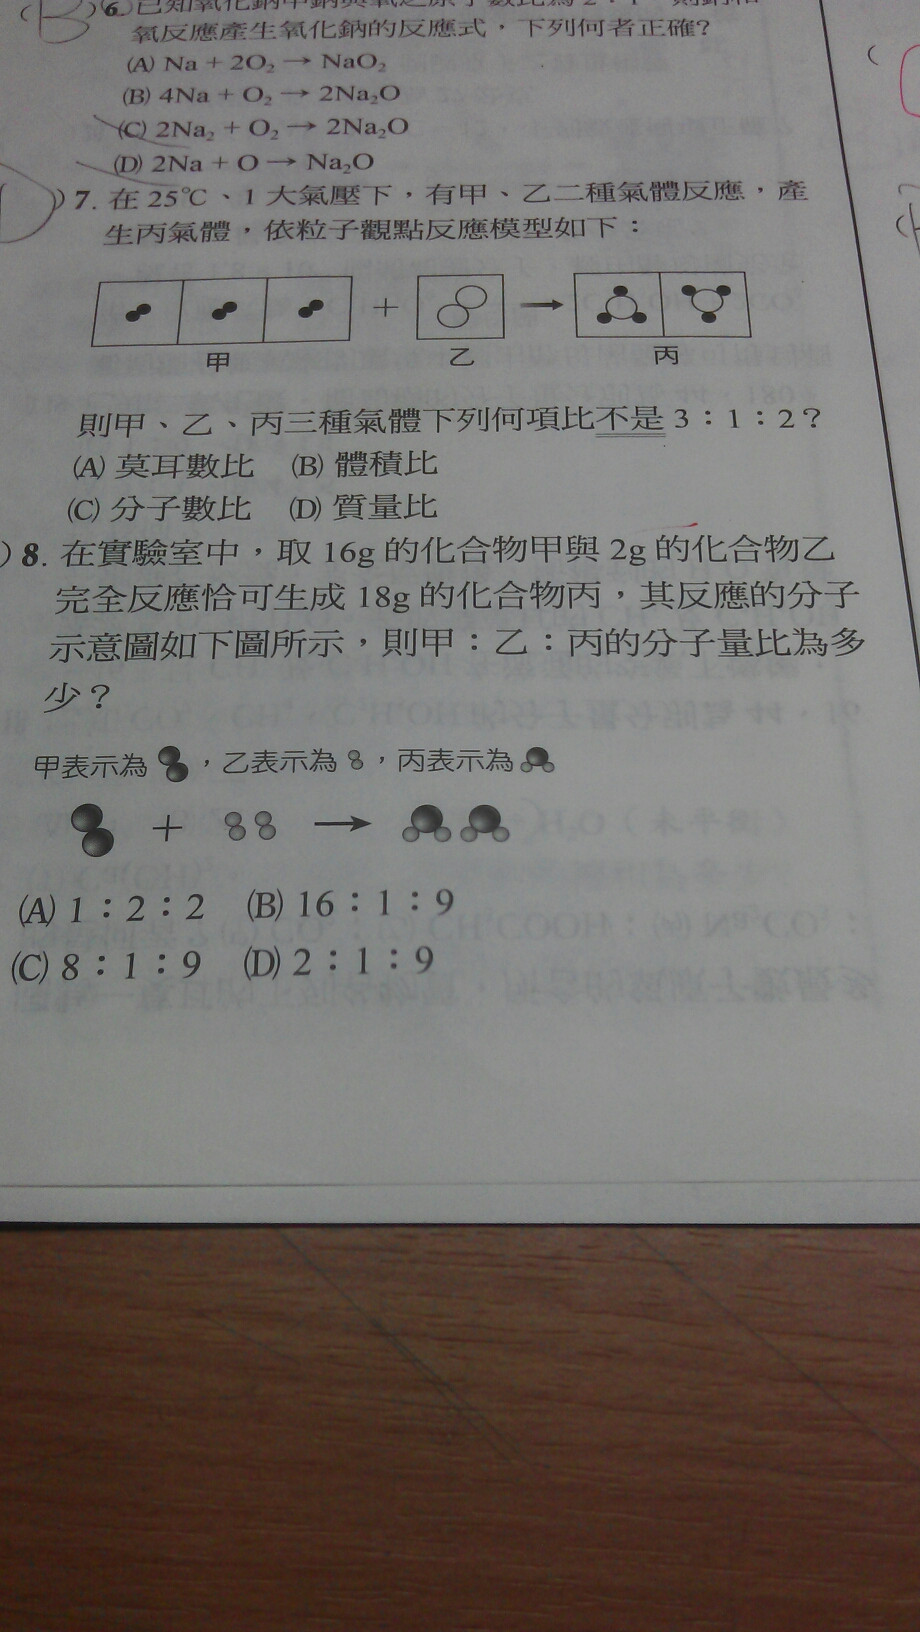 (B)6. 已知氧化鈉中鈉與氧之原子數比為2：1，則鈉和
氧反應產生氧化鈉的反應式，下列何者正確？
(A) Na + 2O₂ → NaO₂
(B) 4Na + O₂ → 2Na₂O
(C) 2Na₂ + O₂ → 2Na₂O
(D) 2Na + O → Na₂O
(D)7. 在 25℃、1 大氣壓下，有甲、乙二種氣體反應，產
生丙氣體，依粒子觀點反應模型如下：
+ →
甲 乙 丙
則甲、乙、丙三種氣體下列何項比不是 3：1：2？
(A) 莫耳數比 (B) 體積比
(C) 分子數比 (D) 質量比
)8. 在實驗室中，取 16g 的化合物甲與 2g 的化合物乙
完全反應恰可生成 18g 的化合物丙，其反應的分子
示意圖如下圖所示，則甲：乙：丙的分子量比為多
少？
甲表示為 ，乙表示為 ，丙表示為
+ →
(A) 1：2：2 (B) 16：1：9
(C) 8：1：9 (D) 2：1：9